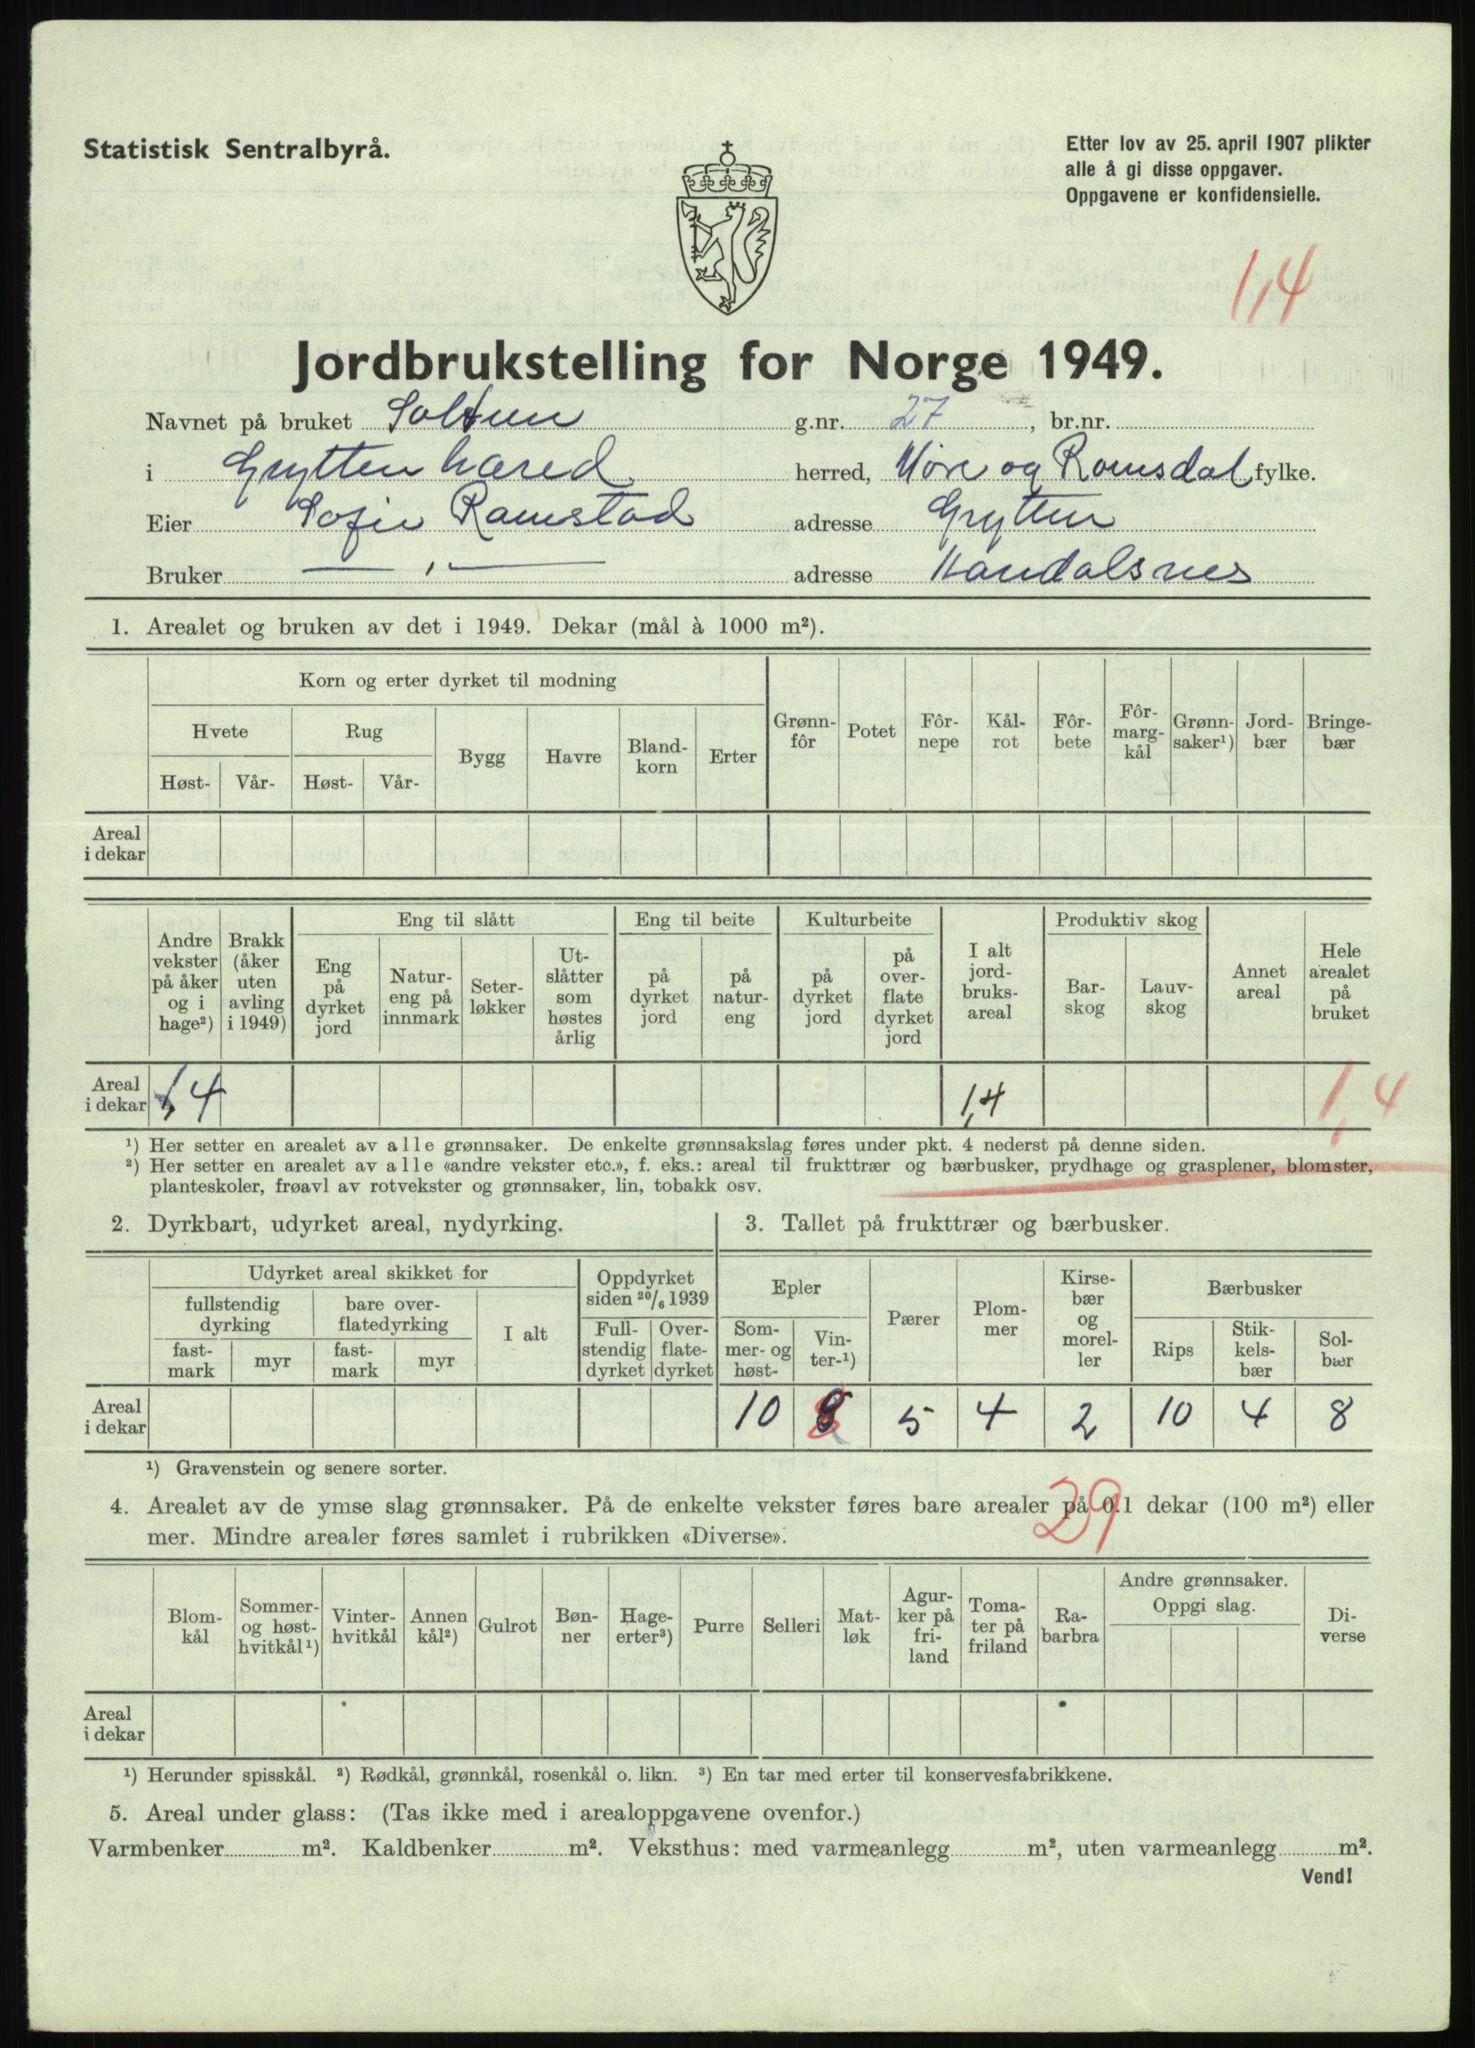 Statistisk Sentralbyrå.
Etter lov av 25. april 1907 plikter
alle å gi disse oppgaver.
Oppgavene er konfidensielle.
1,4
Jordbrukstelling for Norge 1949.
Navnet på bruket Soltun g.nr. 27, br.nr.
i Grytten herred herred, Møre og Romsdal fylke.
Eier Sofie Ramstad adresse Grytten
Bruker — „ — adresse Åandalsnes
1. Arealet og bruken av det i 1949. Dekar (mål à 1000 m²).
Korn og erter dyrket til modning
Hvete Rug Bygg Havre Bland-korn Erter Grønn-fôr Potet Fôr-nepe Kål-rot Fôr-bete Fôr-marg-kål Grønn-saker¹) Jord-bær Bringe-bær
Høst- Vår- Høst- Vår-
Areal
i dekar
Eng til slått Eng til beite Kulturbeite Produktiv skog
Andre vekster på åker og i hage²) Brakk (åker uten avling i 1949) Eng på dyrket jord Natur-eng på innmark Seter-løkker Ut-slåtter som høstes årlig på dyrket jord på natur-eng på dyrket jord på over-flate dyrket jord I alt jord-bruks-areal Bar-skog Lauv-skog Annet areal Hele arealet på bruket
Areal
i dekar 1,4 1,4 1,4
¹) Her setter en arealet av alle grønnsaker. De enkelte grønnsakslag føres under pkt. 4 nederst på denne siden.
²) Her setter en arealet av alle «andre vekster etc.», f. eks.: areal til frukttrær og bærbusker, prydhage og grasplener, blomster,
planteskoler, frøavl av rotvekster og grønnsaker, lin, tobakk osv.
2. Dyrkbart, udyrket areal, nydyrking.
3. Tallet på frukttrær og bærbusker.
Udyrket areal skikket for Oppdyrket siden 20/6 1939
fullstendig dyrking bare over-flatedyrking I alt
fast-mark myr fast-mark myr Full-stendig dyrket Over-flate-dyrket
Epler Pærer Plom-mer Kirse-bær og morel-ler Bærbusker
Som-mer- og høst- Vin-ter-¹) Rips Stik-kels-bær Sol-bær
Areal
i dekar 10 8 5 4 2 10 4 8
¹) Gravenstein og senere sorter.
29
4. Arealet av de ymse slag grønnsaker. På de enkelte vekster føres bare arealer på 0.1 dekar (100 m²) eller
mer. Mindre arealer føres samlet i rubrikken «Diverse».
Blom-kål Sommer- og høst-hvitkål¹) Vinter-hvitkål Annen kål²) Gulrot Bøn-ner Hage-erter³) Purre Selleri Mat-løk Agur-ker på fri-land Toma-ter på friland Ra-barbra Andre grønnsaker. Oppgi slag. Di-verse
Areal
i dekar
¹) Herunder spisskål. ²) Rødkål, grønnkål, rosenkål o. likn. ³) En tar med erter til konservesfabrikkene.
5. Areal under glass: (Tas ikke med i arealoppgavene ovenfor.)
Varmbenker m². Kaldbenker m². Veksthus: med varmeanlegg m², uten varmeanlegg m².
Vend!